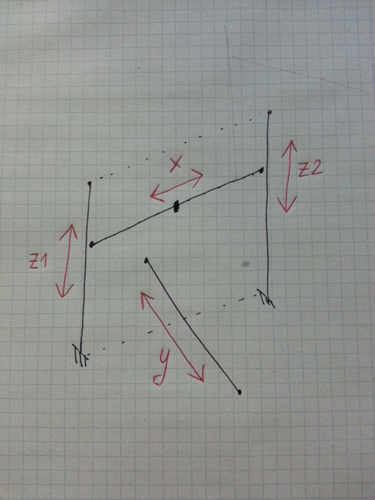 x
z2
z1
y